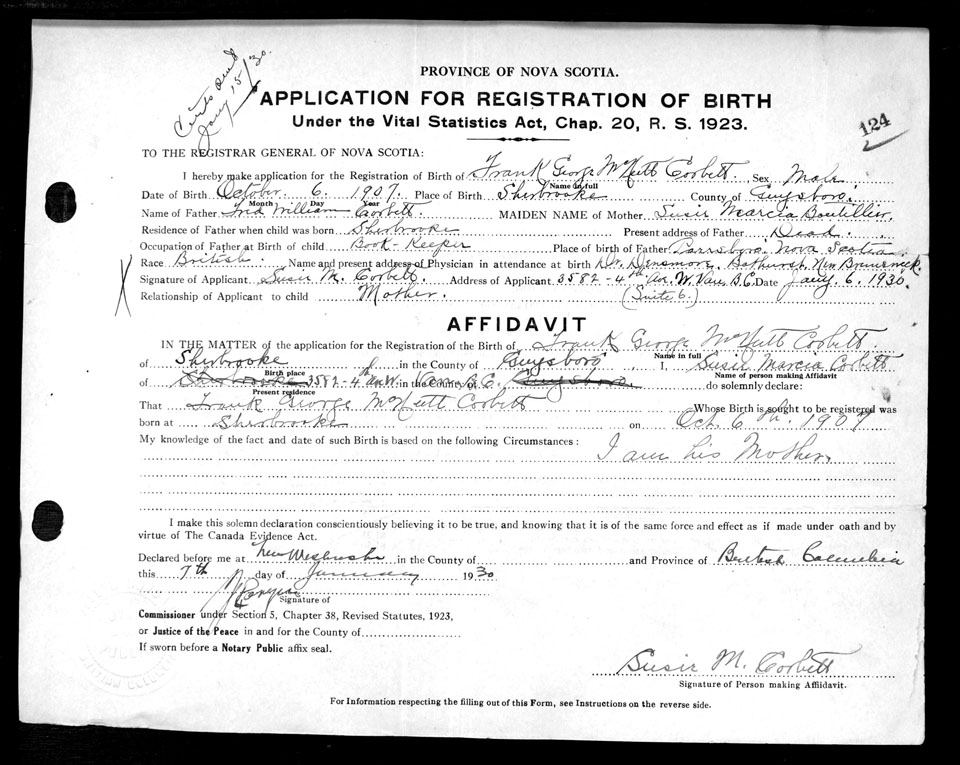 Certs Send
Jany 15/30.
PROVINCE OF NOVA SCOTIA.
APPLICATION FOR REGISTRATION OF BIRTH
Under the Vital Statistics Act, Chap. 20, R. S. 1923.
124
TO THE REGISTRAR GENERAL OF NOVA SCOTIA:
I hereby make application for the Registration of Birth of Frank George McNutt Corbett. Sex Male.
Name in full
Date of Birth October. 6. 1907. Place of Birth Sherbrooke County of Guysboro.
Month Day Year
Name of Father Fred William Corbett. MAIDEN NAME of Mother, Susie Marcia Boutillier.
Residence of Father when child was born Sherbrooke Present address of Father Dead.
Occupation of Father at Birth of child Book-Keeper Place of birth of Father Parrsboro. Nova Scotia.
Race British. Name and present address of Physician in attendance at birth Dr. Densmore, Bathurst, New Brunswick.
X
Signature of Applicant Susie M. Corbett. Address of Applicant 3582-4th Av. W. Van. B.C. Date Jany. 6. 1930.
Relationship of Applicant to child Mother. (Suite 6.)
AFFIDAVIT
IN THE MATTER of the application for the Registration of the Birth of Frank George McNutt Corbett
Name in full
of Sherbrooke in the County of Guysboro, I, Susie Marcia Corbett
Birth place Name of person making Affidavit
of Sherbrooke 3582-4th Av. W. in the County of Van. B.C. Guysboro do solemnly declare:
Present residence
That Frank George McNutt Corbett Whose Birth is sought to be registered was
born at Sherbrooke on Oct. 6th. 1907
My knowledge of the fact and date of such Birth is based on the following Circumstances: I am his Mother.
I make this solemn declaration conscientiously believing it to be true, and knowing that it is of the same force and effect as if made under oath and by
virtue of The Canada Evidence Act.
Declared before me at New Westminster in the County of and Province of British Columbia
this 7th day of January 1930
Signature of
Commissioner under Section 5, Chapter 38, Revised Statutes, 1923,
or Justice of the Peace in and for the County of
If sworn before a Notary Public affix seal.
Susie M. Corbett
Signature of Person making Affidavit.
For Information respecting the filling out of this Form, see Instructions on the reverse side.